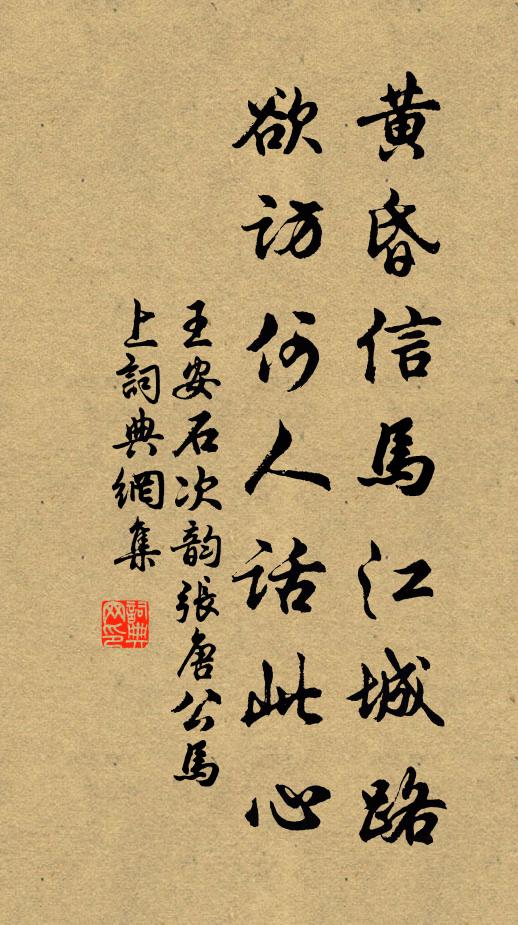 黃昏信馬江城路
欲訪何人話此心
王安石次韵張唐公馬
上詞典網集
詞典
网印